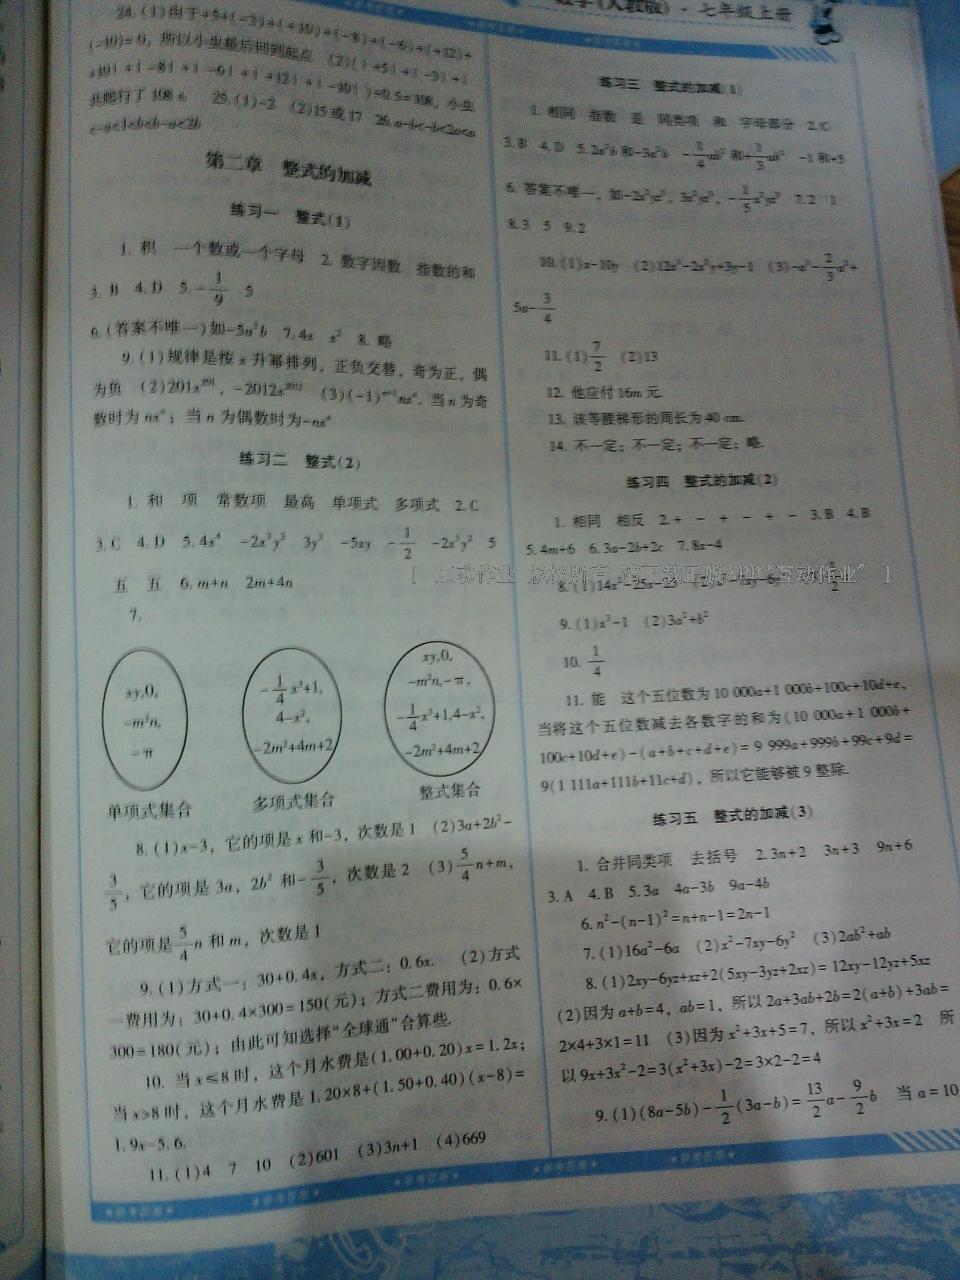 数学(人教版)·七年级上册
24. (1)由于+5+(-3)+(+10)+(-8)+(-6)+(+12)+
(-10)=0，所以小虫最后回到起点 (2)(|+5|+|-3|+|
+10|+|-8|+|-6|+|+12|+|-10|)
共爬行了108 25. (1)-2 (2)15或17
第二章 整式的加减
练习一 整式(1)
1. 积 一个数或一个字母 2. 数字因数 指数的和
3. B 4. D 5. -1/9 5
6. (答案不唯一)如-5a³b 7. 4x x² 8. 略
9. (1)规律是按x升幂排列，正负交替，奇为正，偶
为负 (2)201x²⁰¹，-2012x²⁰¹² (3)(-1)ⁿ⁺¹nxⁿ. 当n为奇
数时为nxⁿ；当n为偶数时为-nxⁿ
练习二 整式(2)
1. 和 项 常数项 最高 单项式 多项式 2. C
3. C 4. D 5. 4x⁴ -2x³y² 3y³ -5xy -1/2 -2x³y² 5
五 五 6. m+n 2m+4n
7.
xy,0,
-m²n,
-π
单项式集合
-1/4x²+1,
4-x²,
-2m³+4m+2
多项式集合
xy,0,
-m²n,-π,
-1/4x³+1,4-x²,
-2m²+4m+2
整式集合
8. (1)x-3，它的项是x和-3，次数是1 (2)3a+2b²-
3/5，它的项是3a，2b²和-3/5，次数是2 (3)5/4n+m，
它的项是5/4n和m，次数是1
9. (1)方式一：30+0.4x，方式二：0.6x. (2)方式
一费用为：30+0.4×300=150(元)；方式二费用为：0.6×
300=180(元)；由此可知选择“全球通”合算些.
10. 当x≤8时，这个月水费是(1.00+0.20)x=1.2x；
当x>8时，这个月水费是1.20×8+(1.50+0.40)(x-8)=
1.9x-5.6.
11. (1)4 7 10 (2)601 (3)3n+1 (4)669
练习三 整式的加减(1)
1. 相同 指数 是 同类项 和 字母部分 2. C
3. B 4. D 5. 2a²b和-3a²b -1/4ab²和+1/3ab² -1和+5
6. 答案不唯一，如-2x²yz³，3x²yz³，-1/5x²yz³ 7. 2 1
8. 3 5 9. 2
10. (1)x-10y (2)12x³-2x²y+3y-1 (3)-a³-2/3a²+
5a-3/4
11. (1)7/2 (2)13
12. 他应付16m元.
13. 该等腰梯形的周长为40 cm.
14. 不一定；不一定；不一定；略.
练习四 整式的加减(2)
1. 相同 相反 2. + - + - + - 3. B 4. B
5. 4m+6 6. 3a-2b+2c 7. 8x-4
[ 互动作业 APP“互动作业” ]
8. (1)14x²-25x-23
9. (1)x³-1 (2)3a²+b²
10. 1/4
11. 能 这个五位数为10 000a+1 000b+100c+10d+e，
当将这个五位数减去各数字的和为(10 000a+1 000b+
100c+10d+e)-(a+b+c+d+e)=9 999a+999b+99c+9d=
9(1 111a+111b+11c+d)，所以它能够被9整除.
练习五 整式的加减(3)
1. 合并同类项 去括号 2. 3n+2 3n+3 9n+6
3. A 4. B 5. 3a 4a-3b 9a-4b
6. n²-(n-1)²=n+n-1=2n-1
7. (1)16a²-6a (2)x²-7xy-6y² (3)2ab²+ab
8. (1)2xy-6yz+xz+2(5xy-3yz+2xz)=12xy-12yz+5xz
(2)因为a+b=4，ab=1，所以2a+3ab+2b=2(a+b)+3ab=
2×4+3×1=11 (3)因为x²+3x+5=7，所以x²+3x=2 所
以9x+3x²-2=3(x²+3x)-2=3×2-2=4
9. (1)(8a-5b)-1/2(3a-b)=13/2a-9/2b 当a=10
★参考答案★ ★参考答案★ ★参考答案★ ★参考答案★ ★参考答案★